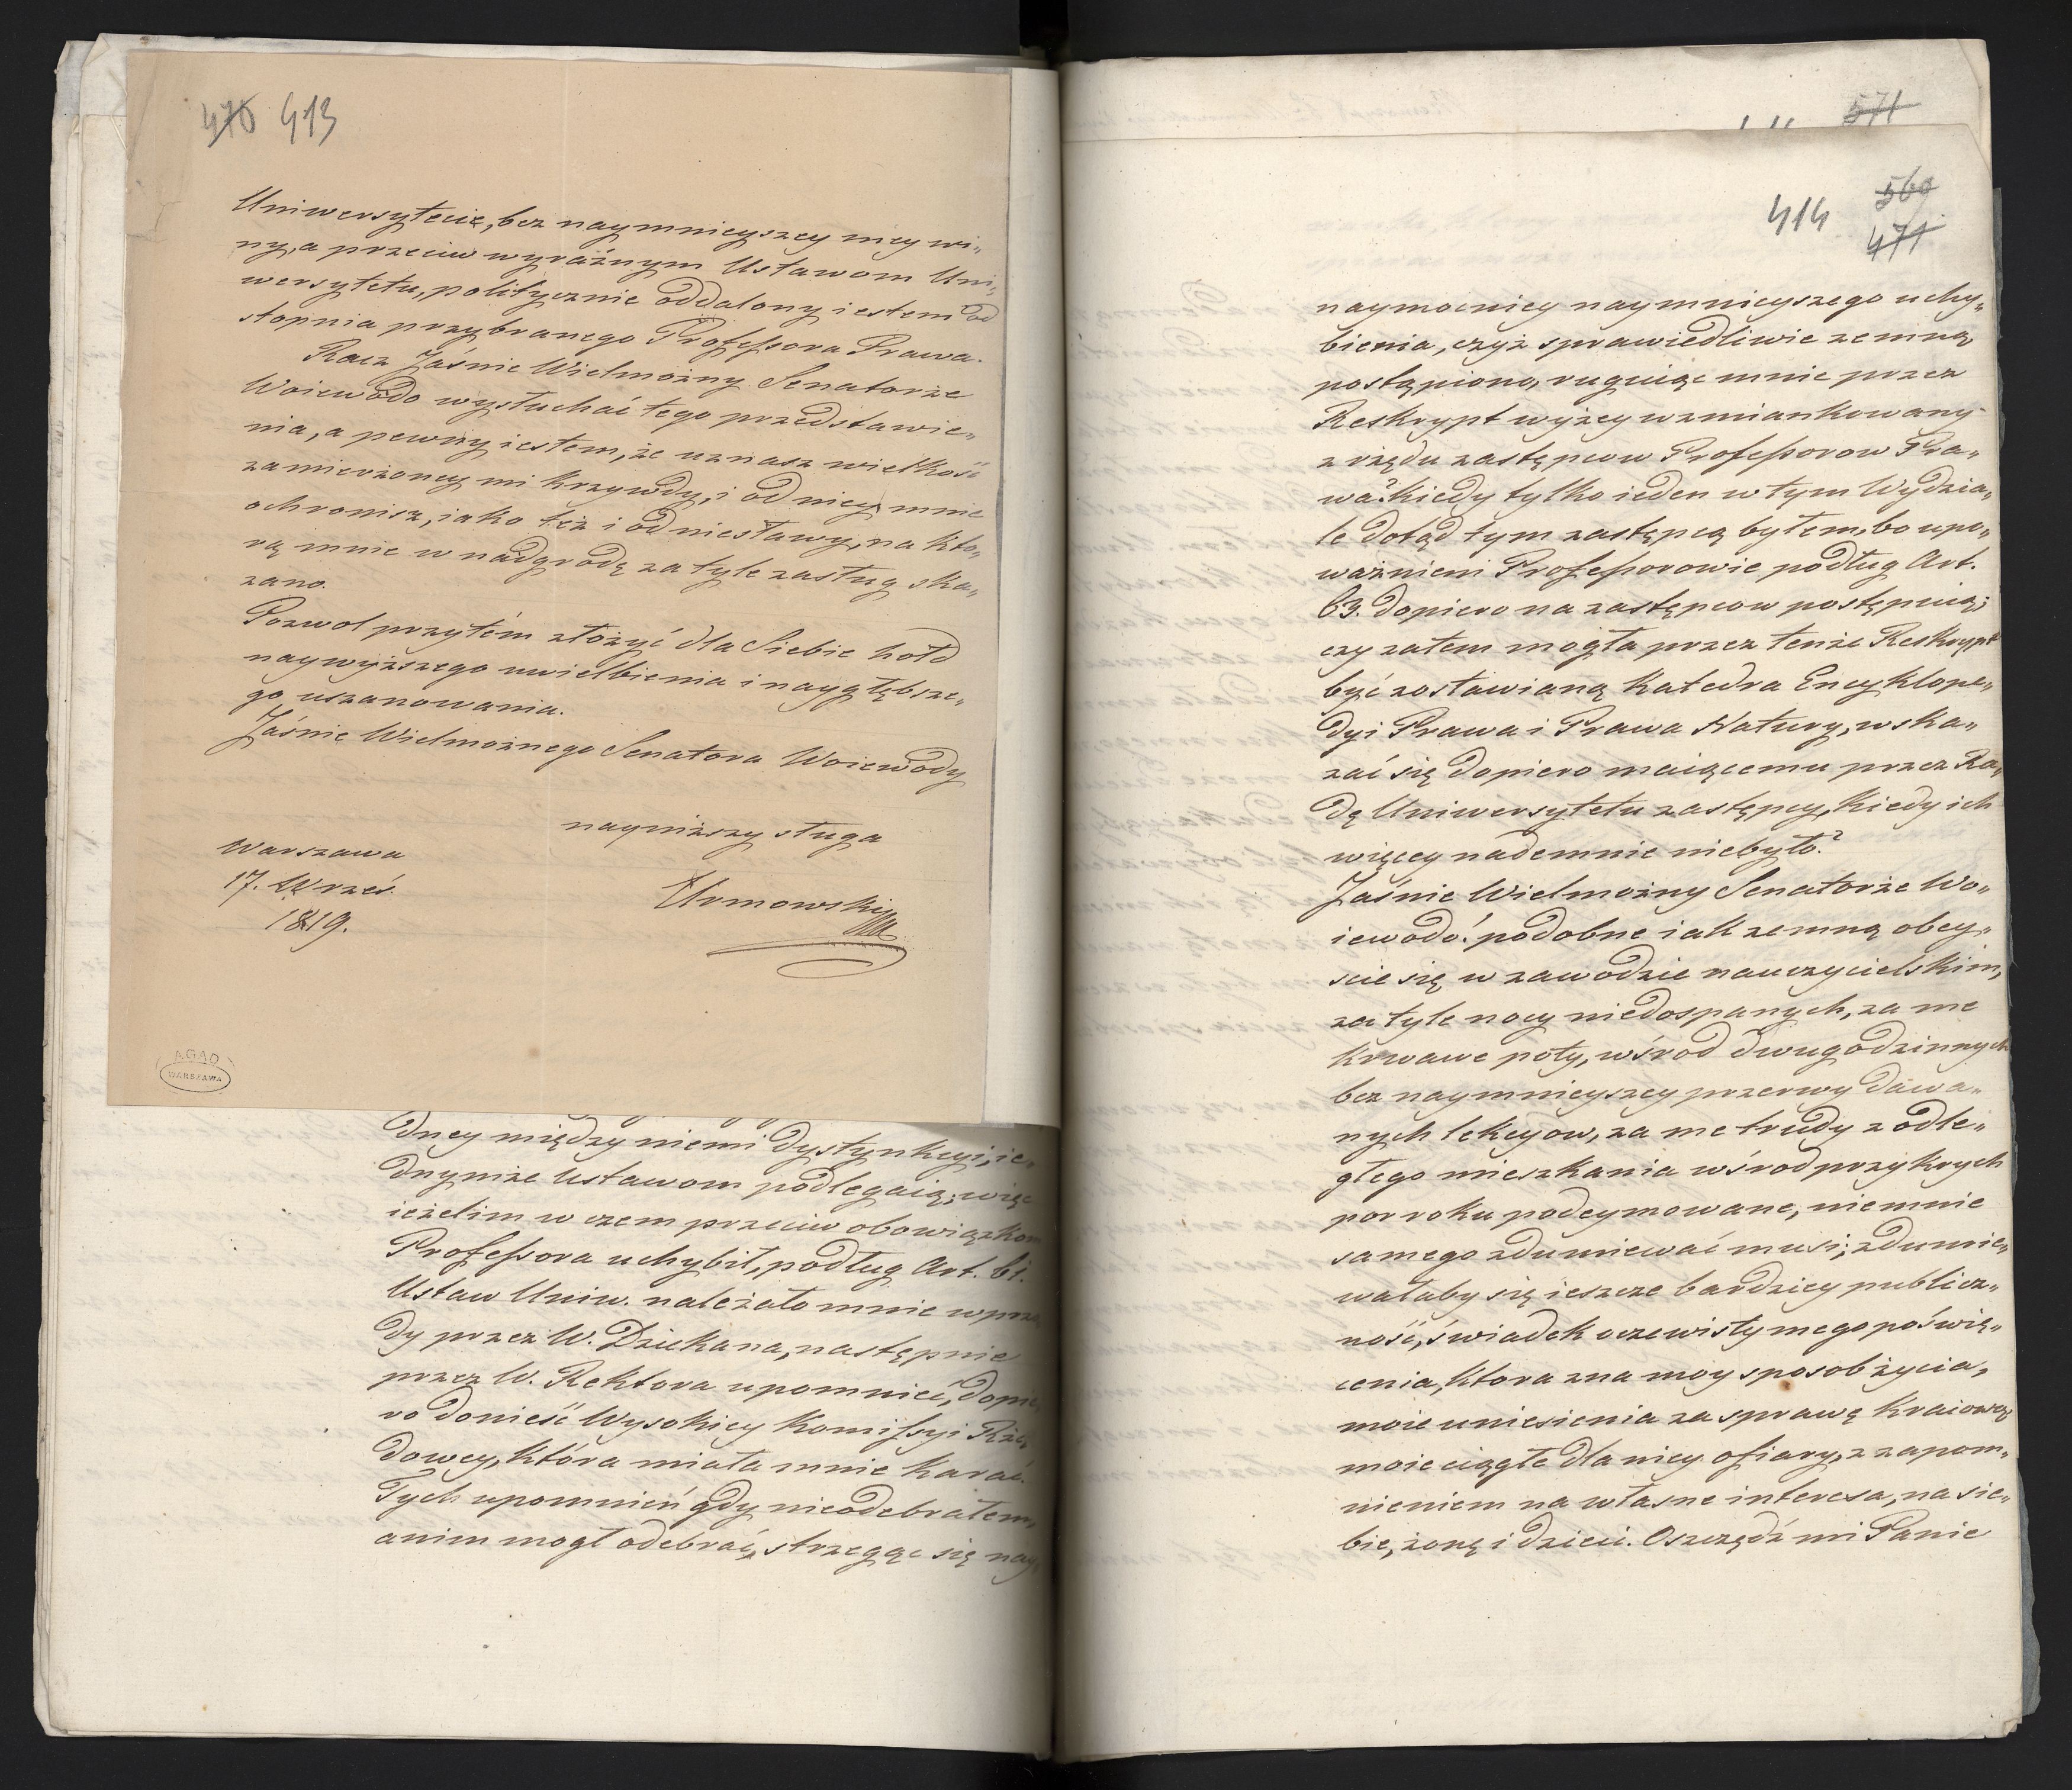 470 413
Uniwersytecie, bez naymnieyszey mey wi„
ny, a przeciw wyraźnym Ustawom Uni„
wersytetu, politycznie oddalony iestem od
stopnia przybranego Professora Prawa.
Racz Jaśnie Wielmożny Senatorze
Woiewodo wysłuchać tego przedstawie„
nia, a pewny iestem, że uznasz wielkość
zamierzoney mi krzywdy, i od niey mnie
ochronisz, iako też i od niesławy, na kto„
rą mnie w nadgrodę za tyle zasług ska„
zano.
Pozwol przytém złożyć dla Siebie hołd
naywyższego uwielbienia i naygłębsze„
go uszanowania.
Jaśnie Wielmożnego Senatora Woiewody
nayniższy sługa
Warszawa
17. Wrześ.
1819.
AGAD
WARSZAWA
dney między niemi dystynkcyi, ie„
dnymże Ustawom podlegaią; więc
ieżelim w czem przeciw obowiązkom
Professora uchybił, podług Art. 61.
Ustaw Uniw. należało mnie wprzo
dy przez W. Dziekana, następnie
przez W. Rektora upomnieć, dopie
ro donieść Wysokiey Kommissyi Rzą
dowey, która miała mnie karać.
Tych upomnień gdy nieodebrałem,
anim mogł odebrać, strzegąc się nay
571
414 569
471
naymocniey naymnieyszego uchy„
bienia, czyż sprawiedliwie zemną
postąpiono, ruguiąc mnie przez
Reskrypt wyżey wzmiankowany
z rzędu zastępcow Professorow Pra„
wa? kiedy tylko ieden w tym Wydzia„
le dotąd tym zastępcą byłem, bo upo„
ważnieni Professorowie podług Art.
63. dopiero na zastępcow postępuią;
czy zatem mogła przez tenże Reskrypt
być zostawianą Katedra Encyklope„
dyi Prawa i Prawa Natury, wska„
zać się dopiero maiącemu przez Ra„
dę Uniwersytetu zastępcy, kiedy ich
więcey nademnie niebyło?
Jaśnie Wielmożny Senatorze Wo„
iewodo! podobne iak zemną obey„
scie się w zawodzie nauczycielskim,
za tyle nocy niedospanych, za me
krwawe poty, wśrod dwugodzinnych
bez naymnieyszey przerwy dawa„
nych lekcyow, za me trudy z odle„
głego mieszkania wśrod przykrych
por roku podeymowane, niemnie
samego zdumiewać musi; zdumie„
wałaby się ieszcze bardziey publicz„
ność, świadek oczewisty mego poświę„
cenia, ktora zna moy sposob życia,
moie uniesienia za sprawę kraiową
moie ciągłe dla niey ofiary, z zapom„
nieniem na własne interesa, na sie„
bie, żonę i dzieci. Oszczędź mi Panie